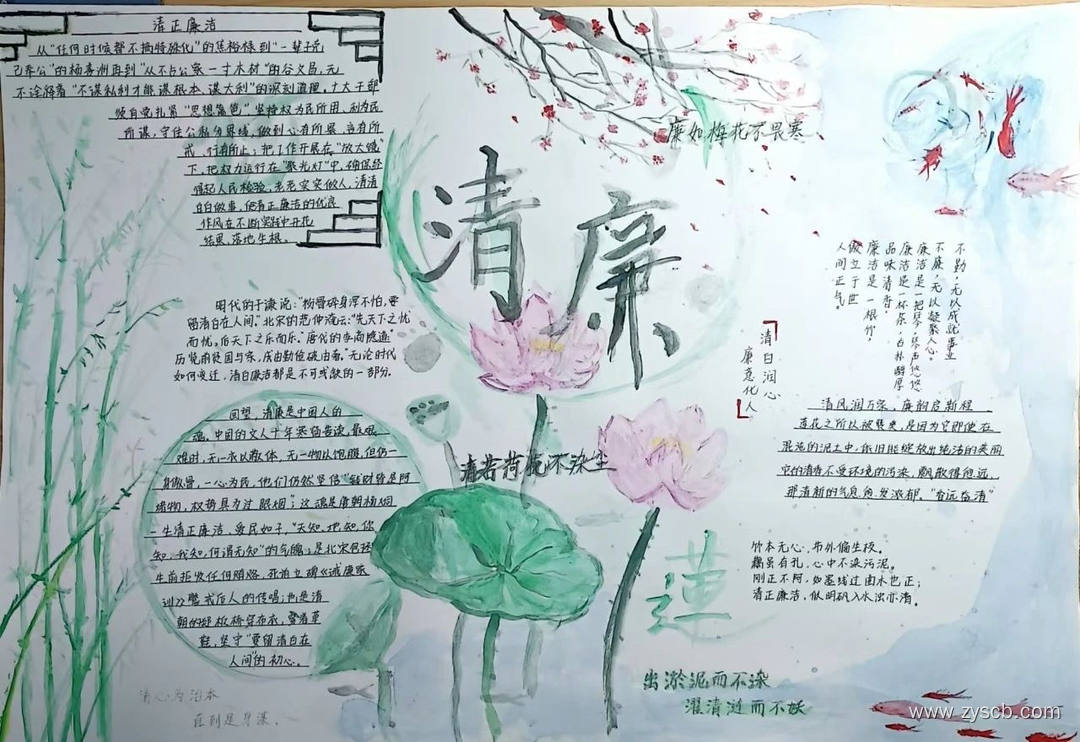 清正廉洁
从"任何时候都不搞特殊化"的焦裕禄到"一辈子克
己奉公"的杨善洲再到"从不占公家一寸木材"的谷文昌,无
不诠释着"不谋私利才能谋根本、谋大利"的深刻道理,广大干部
须自觉扎紧"思想篱笆"坚持权为民所用,利为民
所谋,守住公私分界线,做到心有所畏,言有所
戒,行有所止;把工作开展在"放大镜
下,把权力运行在"聚光灯"中,确保经
得起人民检验,老老实实做人,清清
白白做事,使清正廉洁的优良
作风在不断实践中开花
结果、落地生根。
廉如梅花不畏寒
清廉
明代的于谦说:"粉骨碎身浑不怕,要
留清白在人间。"北宋的范仲淹云:"先天下之忧
而忧,后天下之乐而乐。"唐代的李商隐道:
历览前贤国与家,成由勤俭破由奢。"无论时代
如何变迁,清白廉洁都是不可或缺的一部分。
不勤,无以成就事业
不廉,无以凝聚人心。
廉洁是一把琴,琴声悠悠
廉洁是一杯茶,古朴醇厚
品味清香。
廉洁是一根竹,
傲立于世
人间正气。
清白润心
廉意化人
回望,清廉是中国人的
魂,中国的文人十年寒窗苦读,最艰
难时,无一衣以蔽体,无一物以饱腹,但仍一
身傲骨,一心为民,他们仍然坚信"钱财皆是阿
堵物,权势具为过眼烟";这魂是唐朝杨炯
一生清正廉洁,爱民如子,"天知,地知,你
知,我知,何谓无知"的气魄;是北宋包拯
生前拒收任何贿赂,死前立碑《诫廉家
训》警戒后人的传唱;也是清
朝的郑板桥穿布衣,登着草
鞋,坚守"要留清白在
人间"的初心。
清若荷花不染尘
清风润万家,廉韵启新程
莲花之所以被赞美,是因为它即使在
混浊的泥土中,依旧能绽放出纯洁的美丽
它的清香不受环境的污染,飘散得愈远,
那清新的气息愈发浓郁。"香远益清"
竹本无心,节外偏生枝。
藕虽有孔,心中不染污泥。
刚正不阿,如墨线过曲木也正;
清正廉洁,似明矾入水浊亦清。
莲
出淤泥而不染
濯清涟而不妖
清心为治本
直到是身谋。
www.zyscb.com